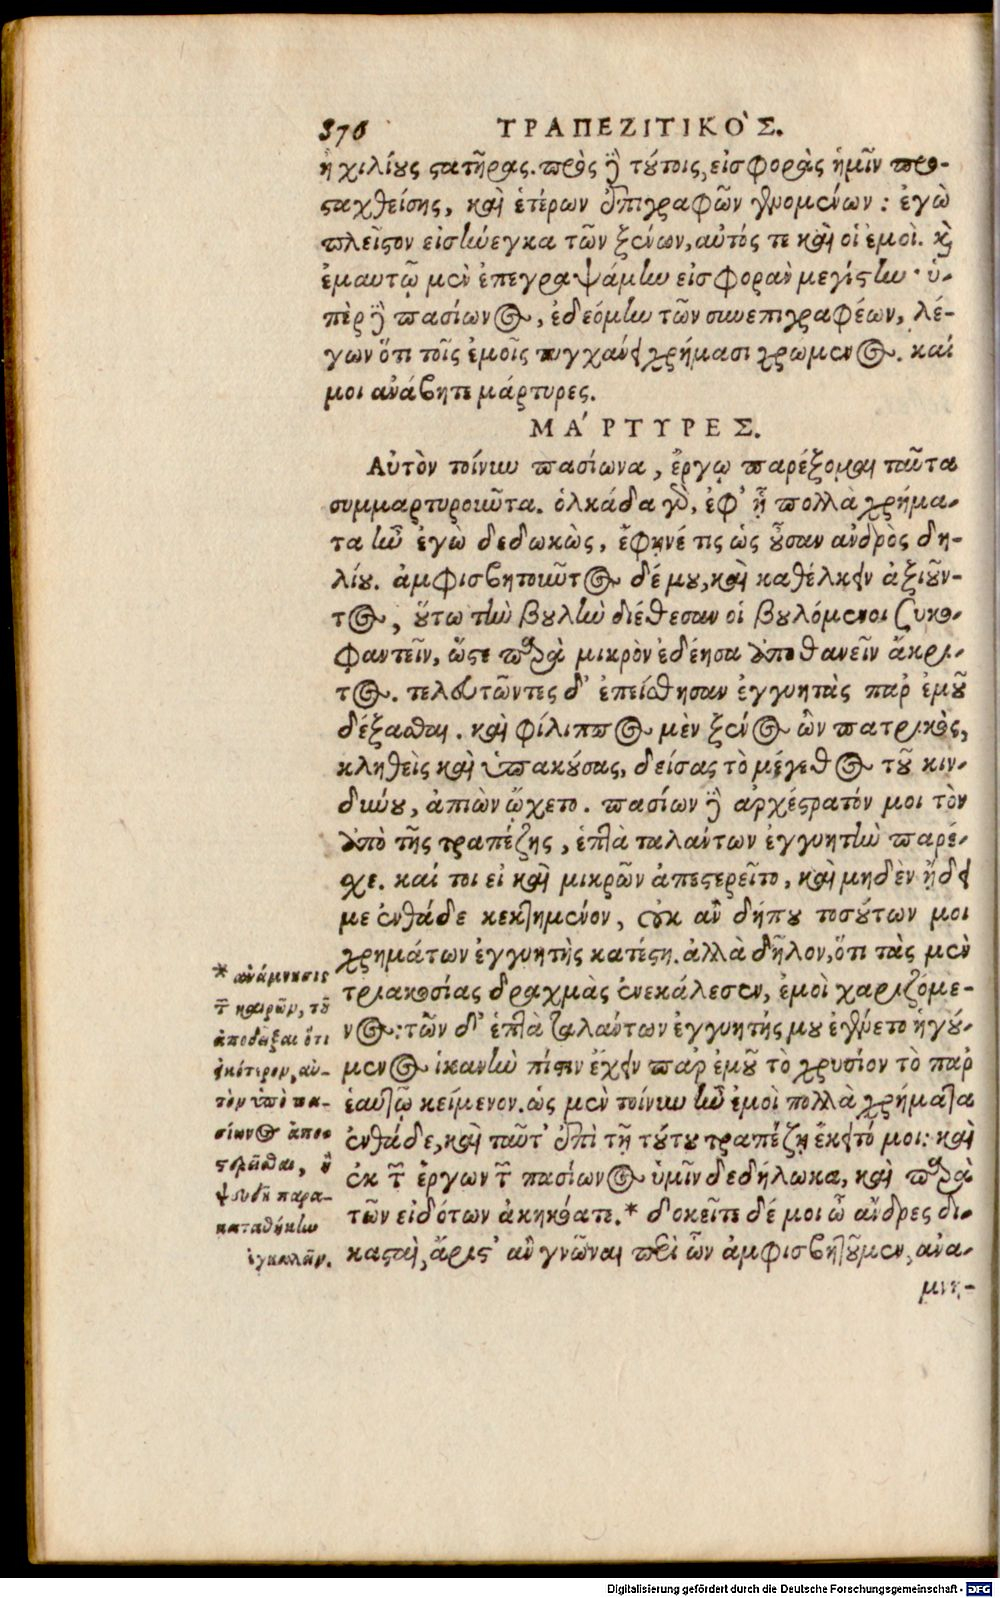 376 ΤΡΑΠΕΖΙΤΙΚΟ`Σ.
ἢ χιλίους στατῆρας. πρὸς δὲ τούτοις, εἰσφορᾶς ἡμῖν προ-
σταχθείσης, καὶ ἑτέρων ἐπιγραφῶν γενομένων : ἐγὼ
πλεῖστον εἰσήνεγκα τῶν ξένων, αὐτός τε καὶ οἱ ἐμοὶ. καὶ
ἐμαυτῷ μὲν ἐπεγραψάμην εἰσφορὰν μεγίστην · ὑ-
πὲρ δὲ πασίωνος, ἐδεόμην τῶν συνεπιγραφέων, λέ-
γων ὅτι τοῖς ἐμοῖς τυγχάνει χρήμασι χρώμενος. καί
μοι ἀνάβητε μάρτυρες.
ΜΑ´ΡΤΥΡΕΣ.
Αὐτὸν τοίνυν πασίωνα, ἔργῳ παρέξομαι ταῦτα
συμμαρτυροῦντα. ὁλκάδα γὰρ, ἐφ' ᾗ πολλὰ χρήμα-
τα ἦν ἐγὼ δεδωκὼς, ἔφηνέ τις ὡς οὖσαν ἀνδρὸς δη-
λίου. ἀμφισβητοῦντος δέ μου, καὶ καθέλκειν ἀξιοῦν-
τος, οὕτω τὴν βουλὴν διέθεσαν οἱ βουλόμενοι συκο-
φαντεῖν, ὥστε παρὰ μικρὸν ἐδέησα ἀποθανεῖν ἄκρι-
τος. τελευτῶντες δ' ἐπείσθησαν ἐγγυητὰς παρ ἐμοῦ
δέξασθαι. καὶ φίλιππος μὲν ξένος ὢν πατρικὸς,
κληθεὶς καὶ ὑπακούσας, δείσας τὸ μέγεθος τοῦ κιν-
δύνου, ἀπιὼν ᾤχετο. πασίων δὲ ἀρχέστρατόν μοι τὸν
ἀπὸ τῆς τραπέζης, ἑπτὰ ταλάντων ἐγγυητὴν παρέ-
σχε. καί τοι εἰ καὶ μικρῶν ἀπεστερεῖτο, καὶ μηδὲν ᾔδει
με ἐνθάδε κεκτημένον, οὐκ ἂν δήπου τοσούτων μοι
χρημάτων ἐγγυητὴς κατέστη. ἀλλὰ δῆλον, ὅτι τὰς μὲν
τριακοσίας δραχμὰς ἐνεκάλεσεν, ἐμοὶ χαριζόμε-
νος: τῶν δ' ἑπτὰ ταλάντων ἐγγυητής μου ἐγένετο ἡγού-
μενος ἱκανὴν πίστιν ἔχειν παρ ἐμοῦ τὸ χρυσίον τὸ παρ
ἑαυτῷ κείμενον. ὡς μὲν τοίνυν ἦν ἐμοὶ πολλὰ χρήματα
ἐνθάδε, καὶ ταῦτ' ἐπὶ τῇ τούτου τραπέζῃ ἔκειτό μοι: καὶ
ἐκ τῶν ἔργων τῶν πασίωνος ὑμῖν δεδήλωκα, καὶ παρὰ
τῶν εἰδότων ἀκηκόατε.* δοκεῖτε δέ μοι ὦ ἄνδρες δι-
κασταὶ, ἄριστ' ἂν γνῶναι περὶ ὧν ἀμφισβητοῦμεν, ἀνα-
μνη-
* ἀνάμνησις
τῶν καιρῶν, τοῦ
ἀποδεῖξαι ὅτι
εἰκότερον, αὐ-
τὸν ὑπὸ πα-
σίωνος ἀποσ
τερεῖσθαι, ἢ
ψευδῆ παρα-
καταθήκην
ἐγκαλεῖν.
Digitalisierung gefördert durch die Deutsche Forschungsgemeinschaft - DFG